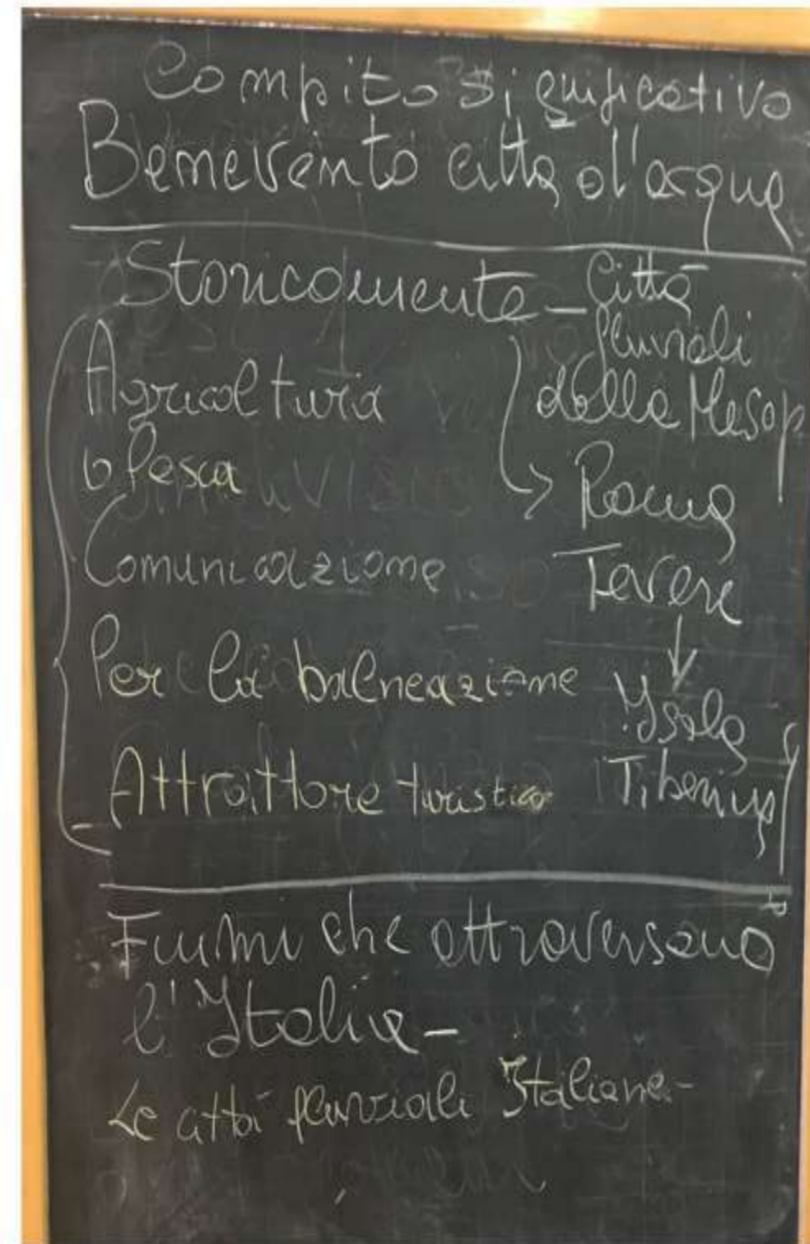 Compito Significativo
Benevento città d'acqua
Storicamente - Città
fluviali
della Mesop
Agricoltura
Pesca
Roma
Comunicazione
Tevere
Per la balneazione
Isola
Attrattore turistico
Tiberina
Fiumi che attraversano
l'Italia -
Le città fluviali Italiane -